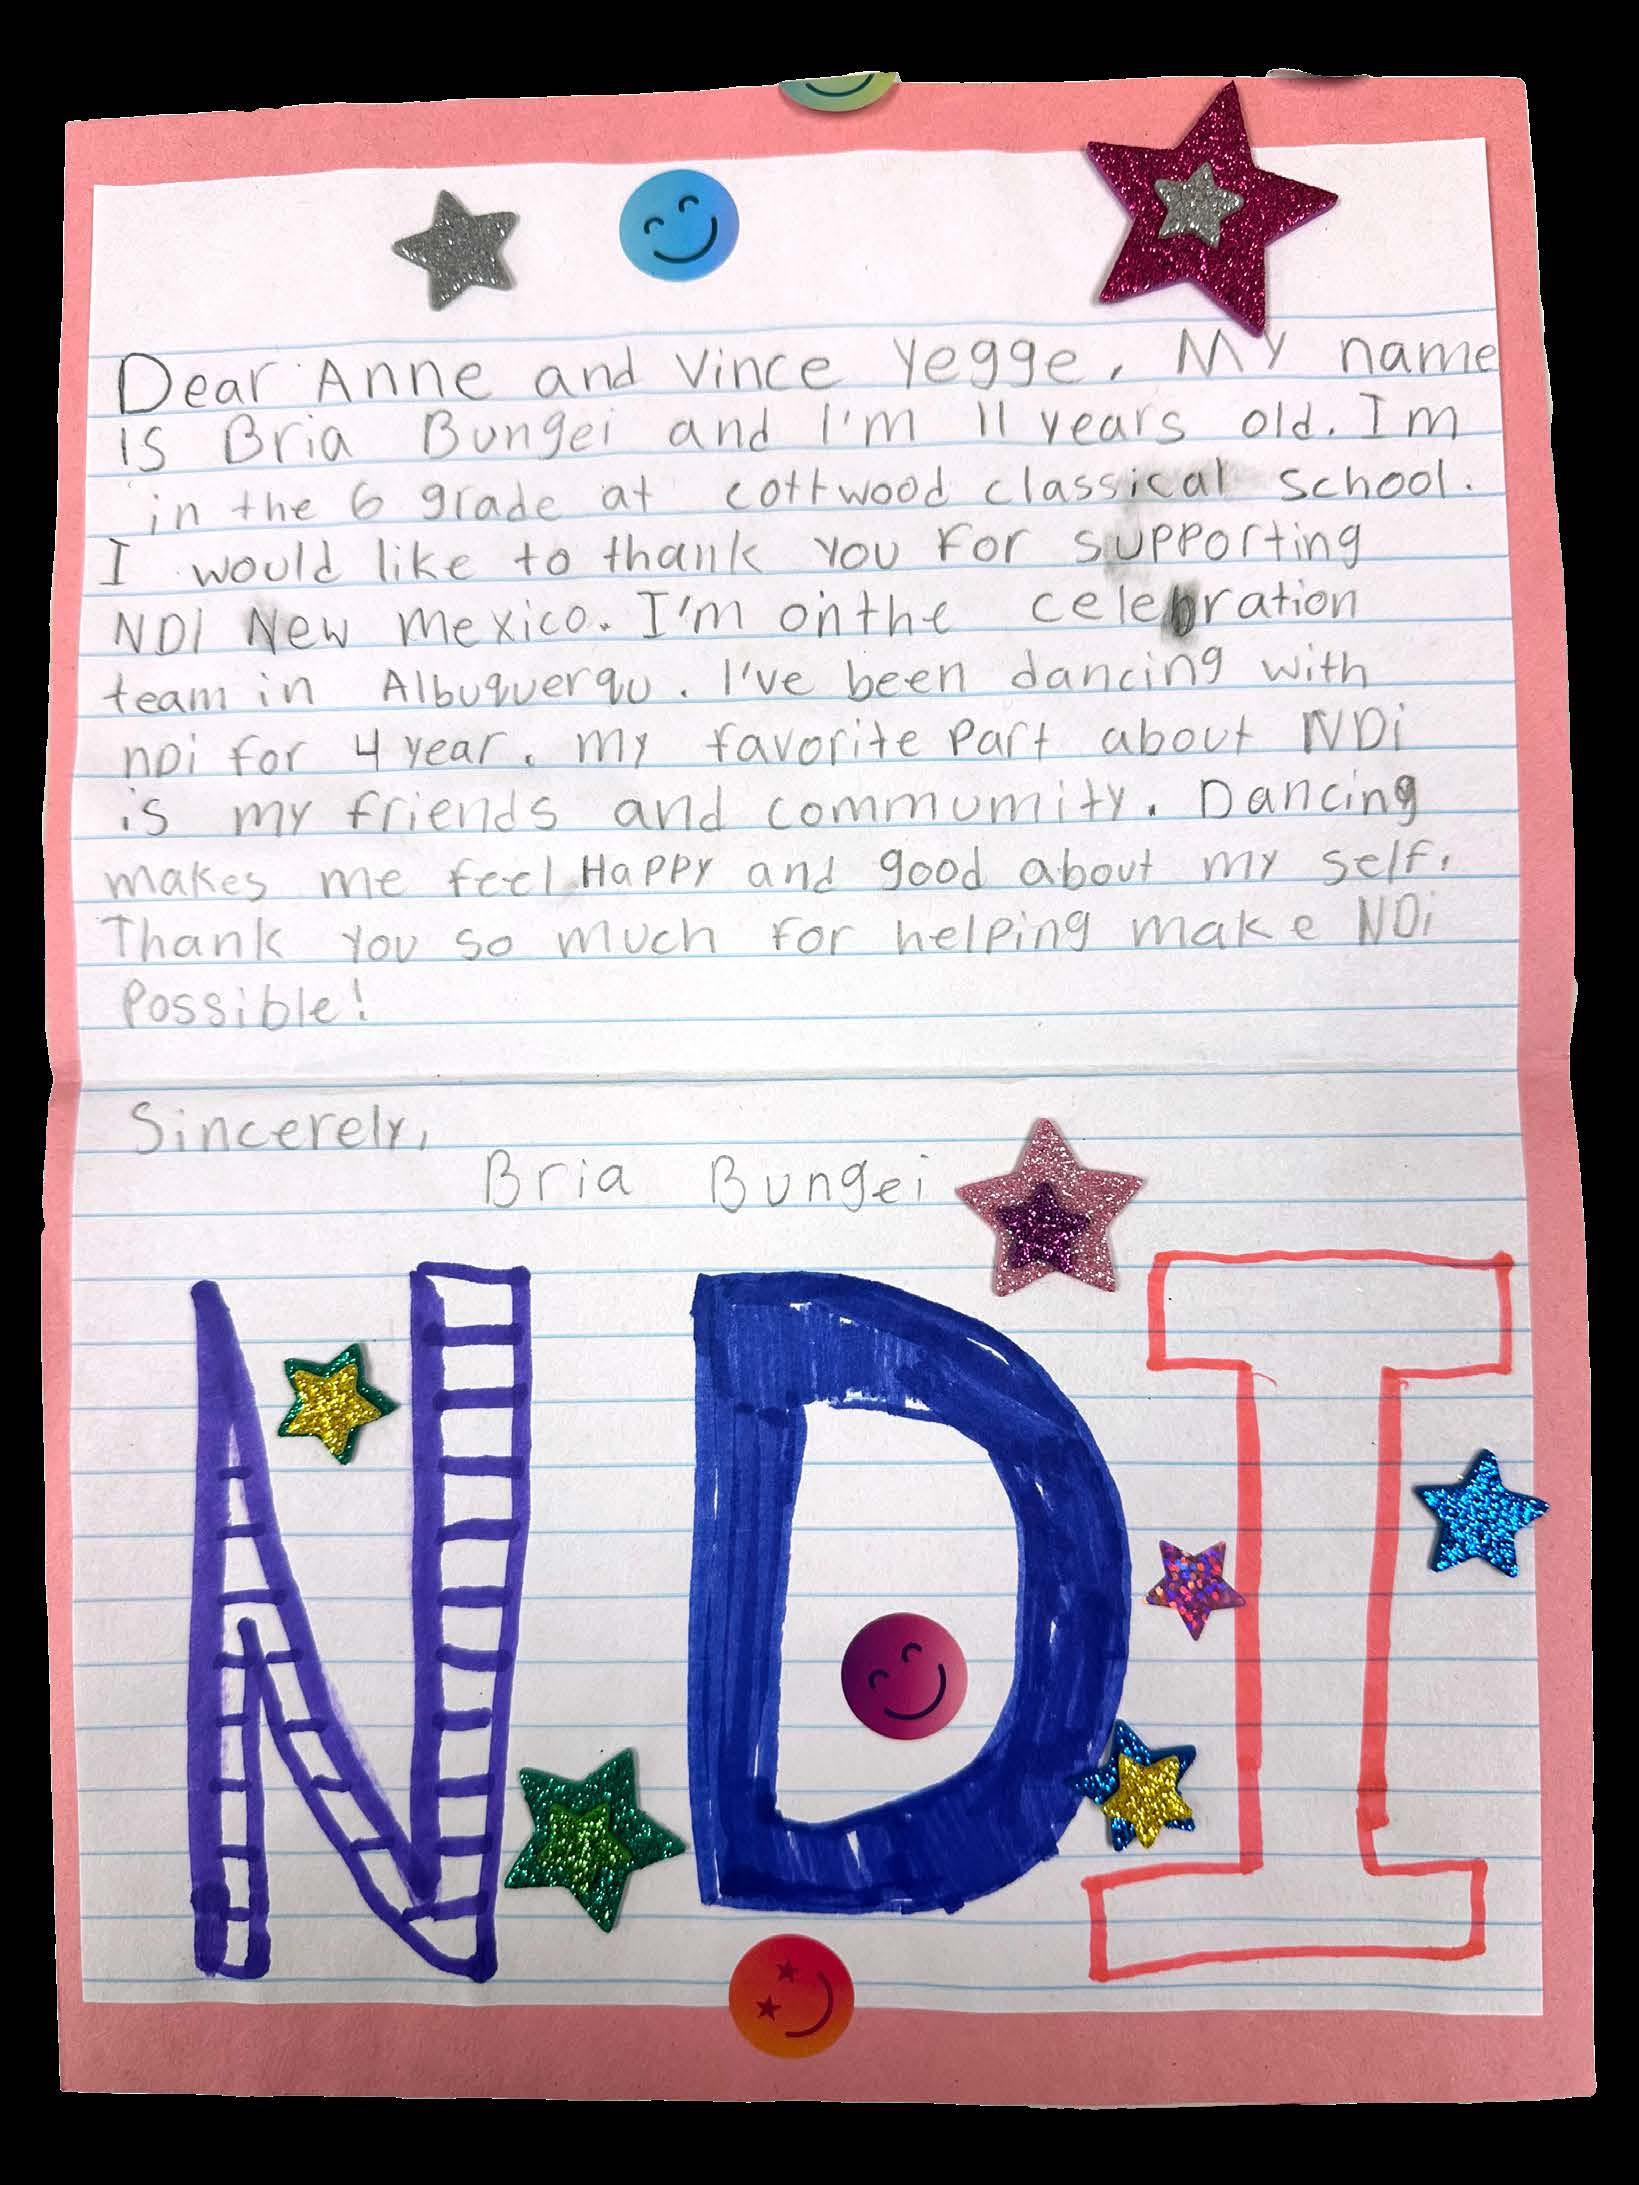 Dear Anne and Vince Yegge, My name
is Bria Bungei and I'm 11 years old. Im
in the 6 grade at cottwood classical school.
I would like to thank you for supporting
NDI New mexico. I'm on the celebration
team in Albuquerqu. I've been dancing with
nDi for 4 year. my favorite part about NDi
is my friends and commumity. Dancing
makes me feel Happy and good about my self.
Thank you so much for helping make NDi
possible!
Sincerely,
Bria Bungei
NDI